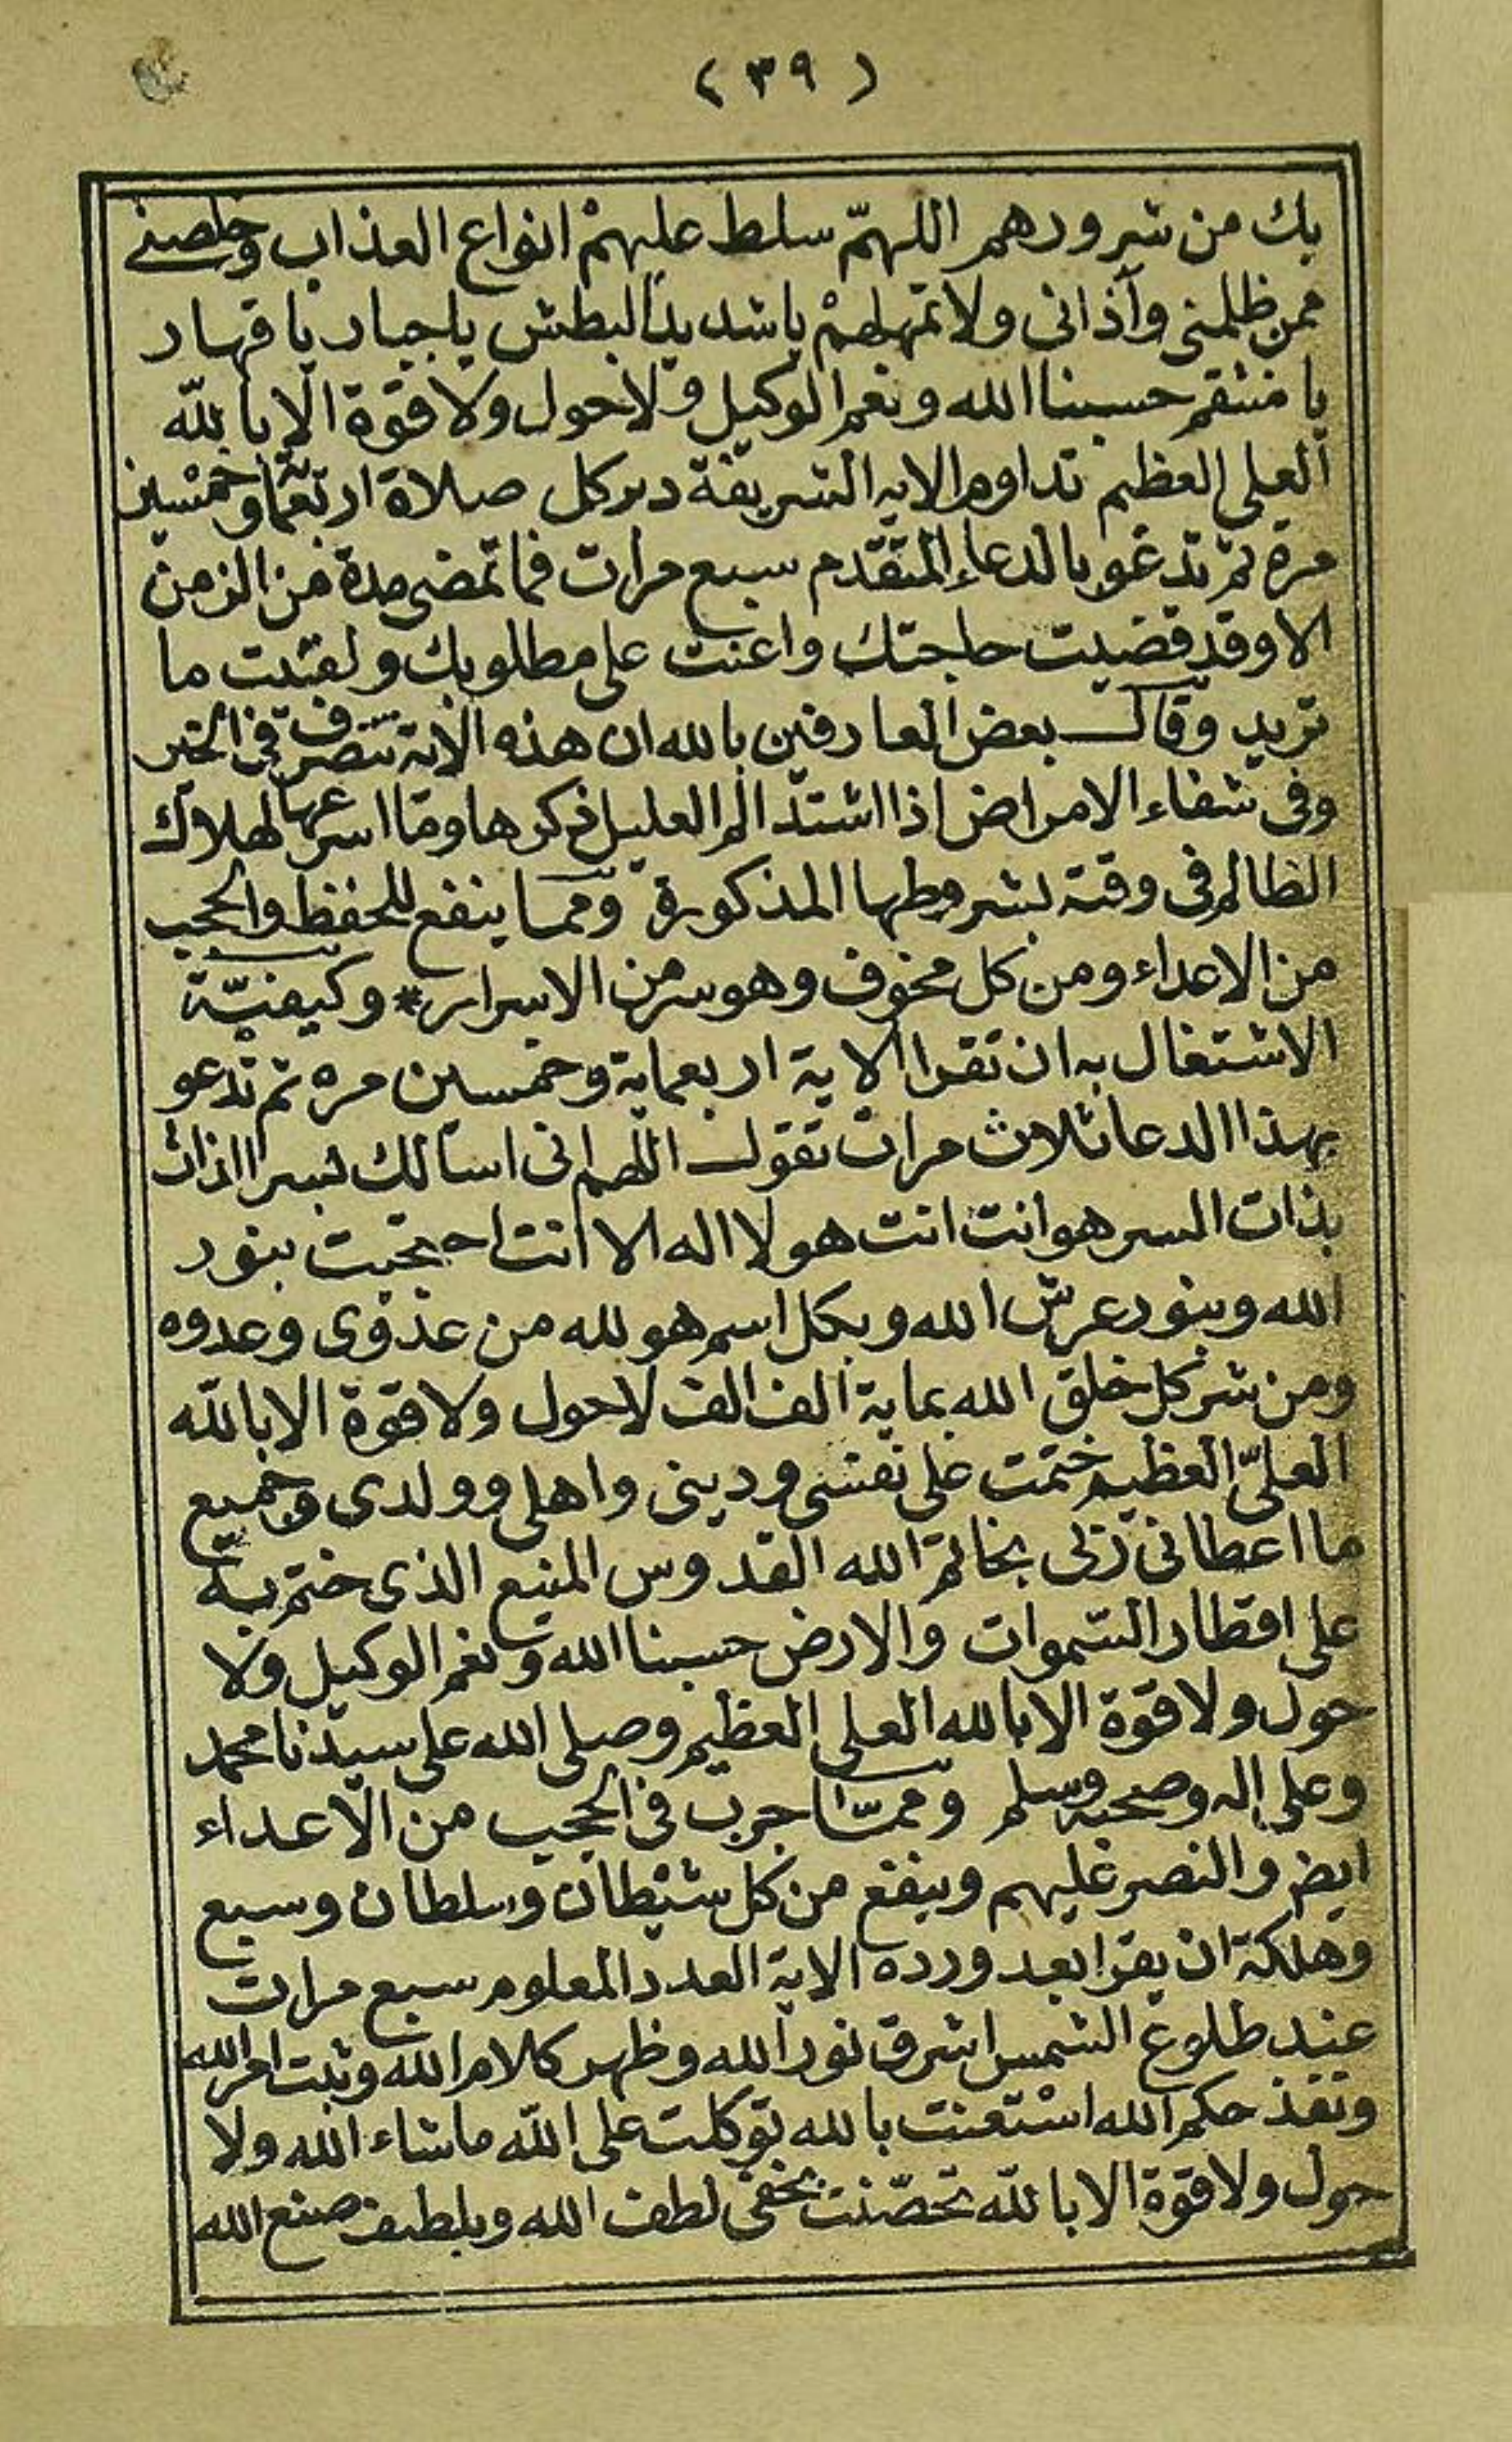 (٣٩)
بك من شرورهم اللهمّ سلط عليهمْ انواع العذاب وخلصنے
ممن ظلمنى وآذانى ولا تمهلهمْ ياشديد البطش ياجبار يا قهار
يا منتقم حسبنا الله ونعم الوكيل ولا حول ولا قوة الا بالله
العلى العظيم تداوم الايه الشريفة دبر كل صلاة اربعمائة وخمسين
مرة ثم تدعو بالدعاء المتقدم سبع مرات فما تمضى مدة من الزمن
الا وقد قضيت حاجتك واعنت على مطلوبك ولقيت ما
تريد وقال بعض العارفين بالله ان هذه الاية تتصرف فى الخير
وفى شفاء الامراض اذا اشتد الم العليل ذكرها وما اسرعها لهلاك
الظالم فى وقته بشروطها المذكورة ومما ينفع للحفظ والحجب
من الاعداء ومن كل مخوف وهو سر من الاسرار * وكيفيّة
الاشتغال به ان تقرا الاية اربعماية وخمسين مره ثم تدعو
بهذا الدعا ثلاث مرات تقول اللهم انى اسالك بسر الذات
بذات السر هو انت انت هو لا اله الا انت احتجبت بنور
الله وبنور عرش الله وبكل اسم هو لله من عدوى وعدوه
ومن شر كل خلق الله بماية الف الف لا حول ولا قوة الا بالله
العلىّ العظيم ختمت على نفسى ودينى واهلى وولدى وجميع
ما اعطانى ربى بخاتم الله القدوس المنيع الذى ختم به
على اقطار السّموات والارض حسبنا الله ونعم الوكيل ولا
حول ولا قوة الا بالله العلى العظيم وصلى الله على سيدنا محمد
وعلى اله وصحبه وسلم وممّا جرب فى الحجب من الاعداء
ايض والنصر عليهم وينفع من كل شيطان وسلطان وسبع
وهلكة ان يقرا بعد ورده الاية العدد المعلوم سبع مرات
عند طلوع الشمس اشرق نور الله وظهر كلام الله وثبت امر الله
ونفذ حكم الله استعنت بالله توكلت على اللّه ماشاء الله ولا
حول ولا قوة الا باللّه تحصّنت بخفى لطف الله وبلطيف صنع الله